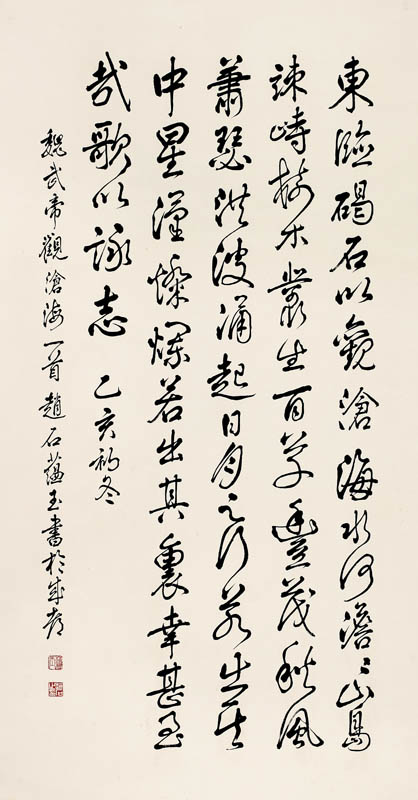 東臨碣石以觀滄海水何澹〻山島
竦峙樹木叢生百草豐茂秋風
蕭瑟洪波涌起日月之行若出其
中星漢燦爛若出其裏幸甚至
哉歌以詠志 乙亥初冬
魏武帝觀滄海一首趙石蘊玉書於成都